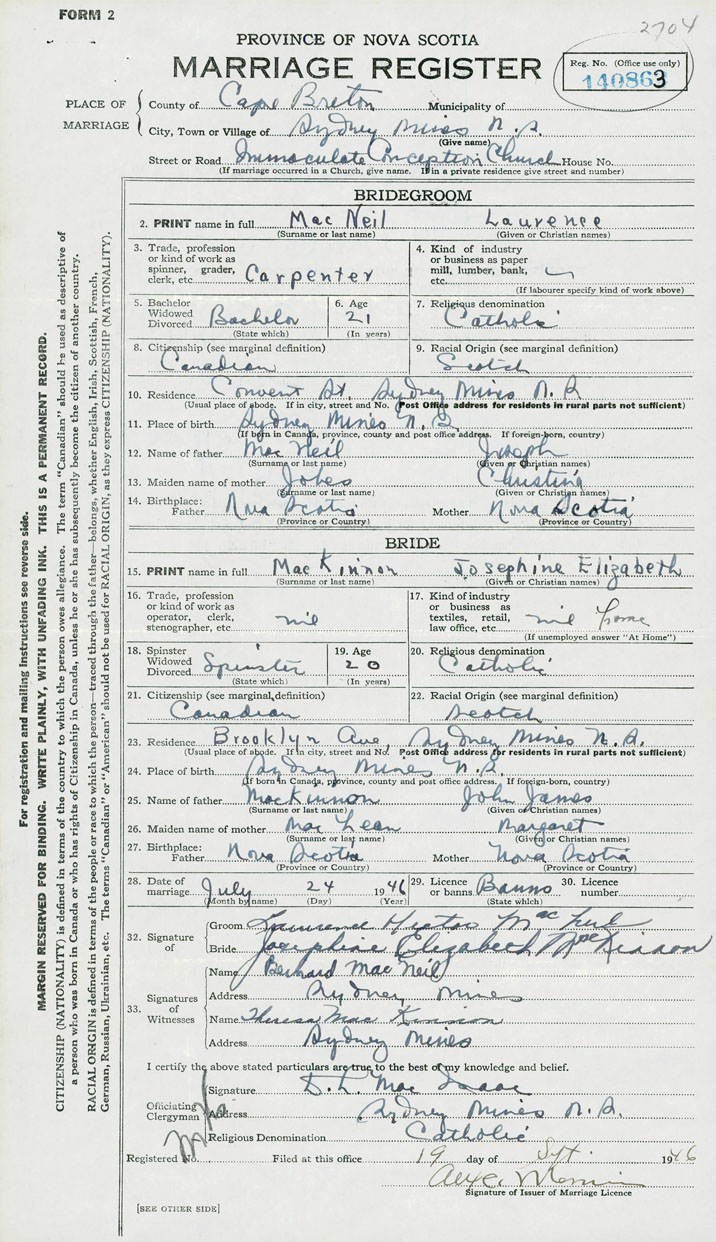 FORM 2
2704
PROVINCE OF NOVA SCOTIA
MARRIAGE REGISTER
Reg. No. (Office use only)
140863
PLACE OF MARRIAGE
County of Cape Breton Municipality of
City, Town or Village of Sydney Mines N.S.
(Give name)
Street or Road Immaculate Conception Church House No.
(If marriage occurred in a Church, give name. If in a private residence give street and number)
BRIDEGROOM
2. PRINT name in full MacNeil Laurence
(Surname or last name) (Given or Christian names)
3. Trade, profession or kind of work as spinner, grader, clerk, etc. Carpenter
4. Kind of industry or business as paper mill, lumber, bank, etc.
(If labourer specify kind of work above)
5. Bachelor Widowed Divorced Bachelor
(State which)
6. Age 21
(In years)
7. Religious denomination
Catholic
8. Citizenship (see marginal definition)
Canadian
9. Racial Origin (see marginal definition)
Scotch
10. Residence Convent St. Sydney Mines N.S
(Usual place of abode. If in city, street and No. Post Office address for residents in rural parts not sufficient)
11. Place of birth Sydney Mines N.S.
(If born in Canada, province, county and post office address. If foreign-born, country)
12. Name of father MacNeil Joseph
(Surname or last name) (Given or Christian names)
13. Maiden name of mother Christina
(Surname or last name) (Given or Christian names)
14. Birthplace: Father Nova Scotia Mother Nova Scotia
(Province or Country) (Province or Country)
BRIDE
15. PRINT name in full MacKinnon Josephine Elizabeth
(Surname or last name) (Given or Christian names)
16. Trade, profession or kind of work as operator, clerk, stenographer, etc. nil
17. Kind of industry or business as textiles, retail, law office, etc. nil home
(If unemployed answer "At Home")
18. Spinster Widowed Divorced Spinster
(State which)
19. Age 20
(In years)
20. Religious denomination
Catholic
21. Citizenship (see marginal definition)
Canadian
22. Racial Origin (see marginal definition)
Scotch
23. Residence Brooklyn Ave, Sydney Mines N.S.
(Usual place of abode. If in city, street and No. Post Office address for residents in rural parts not sufficient)
24. Place of birth Sydney Mines N.S.
(If born in Canada, province, county and post office address. If foreign-born, country)
25. Name of father MacKinnon John James
(Surname or last name) (Given or Christian names)
26. Maiden name of mother MacLean Margaret
(Surname or last name) (Given or Christian names)
27. Birthplace: Father Nova Scotia Mother Nova Scotia
(Province or Country) (Province or Country)
28. Date of marriage July 24 1946
(Month by name) (Day) (Year)
29. Licence or banns Banns
(State which)
30. Licence number
32. Signature of
Groom MacNeil
Bride Josephine Elizabeth MacKinnon
33. Signatures of Witnesses
Name Bernard MacNeil
Address Sydney Mines
Name Theresa MacKinnon
Address Sydney Mines
I certify the above stated particulars are true to the best of my knowledge and belief.
Officiating Clergyman
Signature D. L. MacIsaac
Address Sydney Mines N.S.
Religious Denomination Catholic
Registered No. Filed at this office 19 day of Sept. 1946
Signature of Issuer of Marriage Licence
[SEE OTHER SIDE]
For registration and mailing instructions see reverse side.
MARGIN RESERVED FOR BINDING. WRITE PLAINLY, WITH UNFADING INK. THIS IS A PERMANENT RECORD.
CITIZENSHIP (NATIONALITY) is defined in terms of the country to which the person owes allegiance. The term "Canadian" should be used as descriptive of
a person who was born in Canada or who has rights of Citizenship in Canada, unless he or she has subsequently become the citizen of another country.
RACIAL ORIGIN is defined in terms of the people or race to which the person—traced through the father—belongs, whether English, Irish, Scottish, French,
German, Russian, Ukrainian, etc. The terms "Canadian" or "American" should not be used for RACIAL ORIGIN, as they express CITIZENSHIP (NATIONALITY).